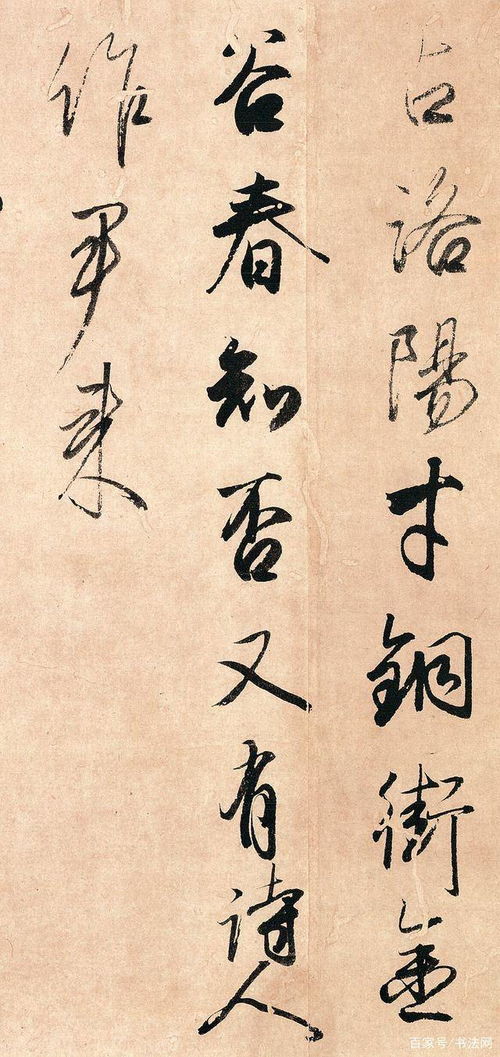 占洛陽才銅街金
谷春知否又有詩人
作尹來
百家号/书法网